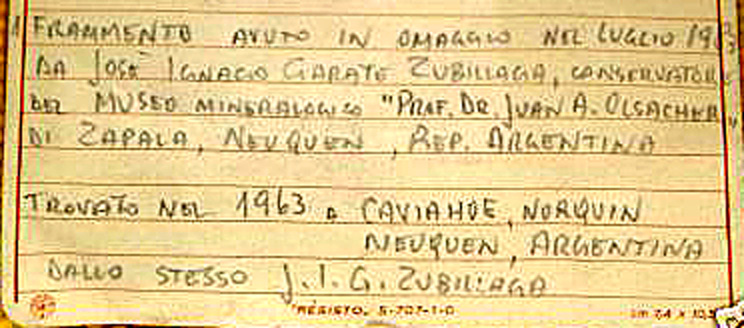 FRAMMENTO AVUTO IN OMAGGIO NEL LUGLIO
DA JOSÉ IGNACIO GARATE ZUBILLAGA, CONSERVATORE
DEL MUSEO MINERALOGICO "PROF. DR. JUAN A. OLSACHER"
DI ZAPALA, NEUQUEN, REP. ARGENTINA
TROVATO NEL 1963 a CAVIAHUE, NORQUIN
NEUQUEN, ARGENTINA
DALLO STESSO J.I.G. ZUBILLAGA
"RESISTO" 5-707-1-0